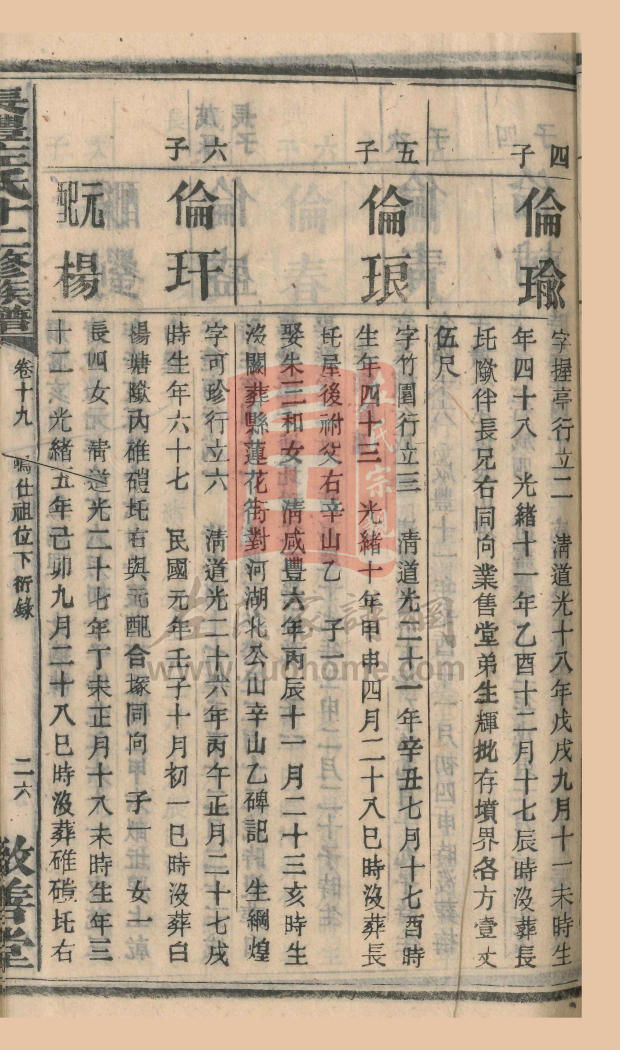 四子
倫瑜
字握亭行立二　清道光十八年戊戌九月十一未時生
年四十八　光緒十一年乙酉十二月十七辰時沒葬長
圫隞伴長兄右同向業售堂弟生輝批存墳界各方壹丈
伍尺
五子
倫琅
字竹圍行立三　清道光二十一年辛丑七月十七酉時
生年四十三　光緒十年甲申四月二十八巳時沒葬長
圫屋後祔父右辛山乙　子一
娶朱三和女　清咸豐六年丙辰十一月二十三亥時生
沒闕葬縣蓮花衖對河湖北公山辛山乙碑記　生綱煌
六子
倫玕
字可珍行立六　清道光二十六年丙午正月二十七戌
時生年六十七　民國元年壬子十月初一巳時沒葬白
楊塘隞內碓磑圫右與元配合塚同向　子一　女一
元配楊
長四女　清道光二十七年丁未正月十八未時生年三
十二　光緒五年己卯九月二十八巳時沒葬碓磑圫右
左氏十二修族譜
卷十九
鳴仕祖位下衍錄
二六
敬善堂
左氏家譜網
www.zuohome.com